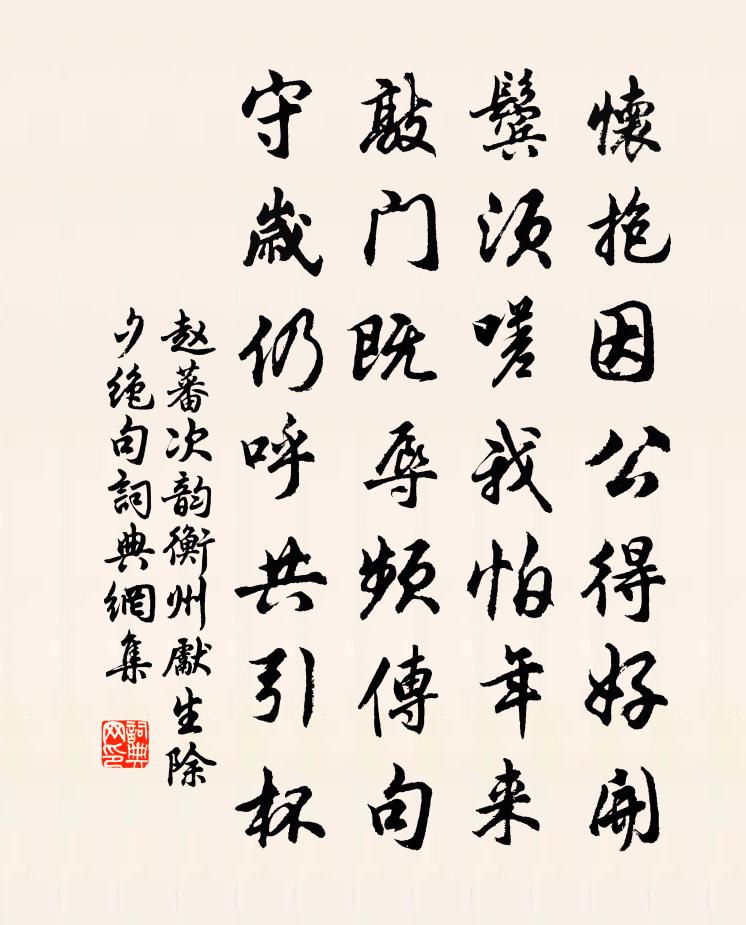 懷抱因公得好開
鬓须嗟我怕年来
敲门既辱频傳句
守歲仍呼共引杯
赵蕃次韵衡州獻生除
夕绝句詞典網集
詞典
网印